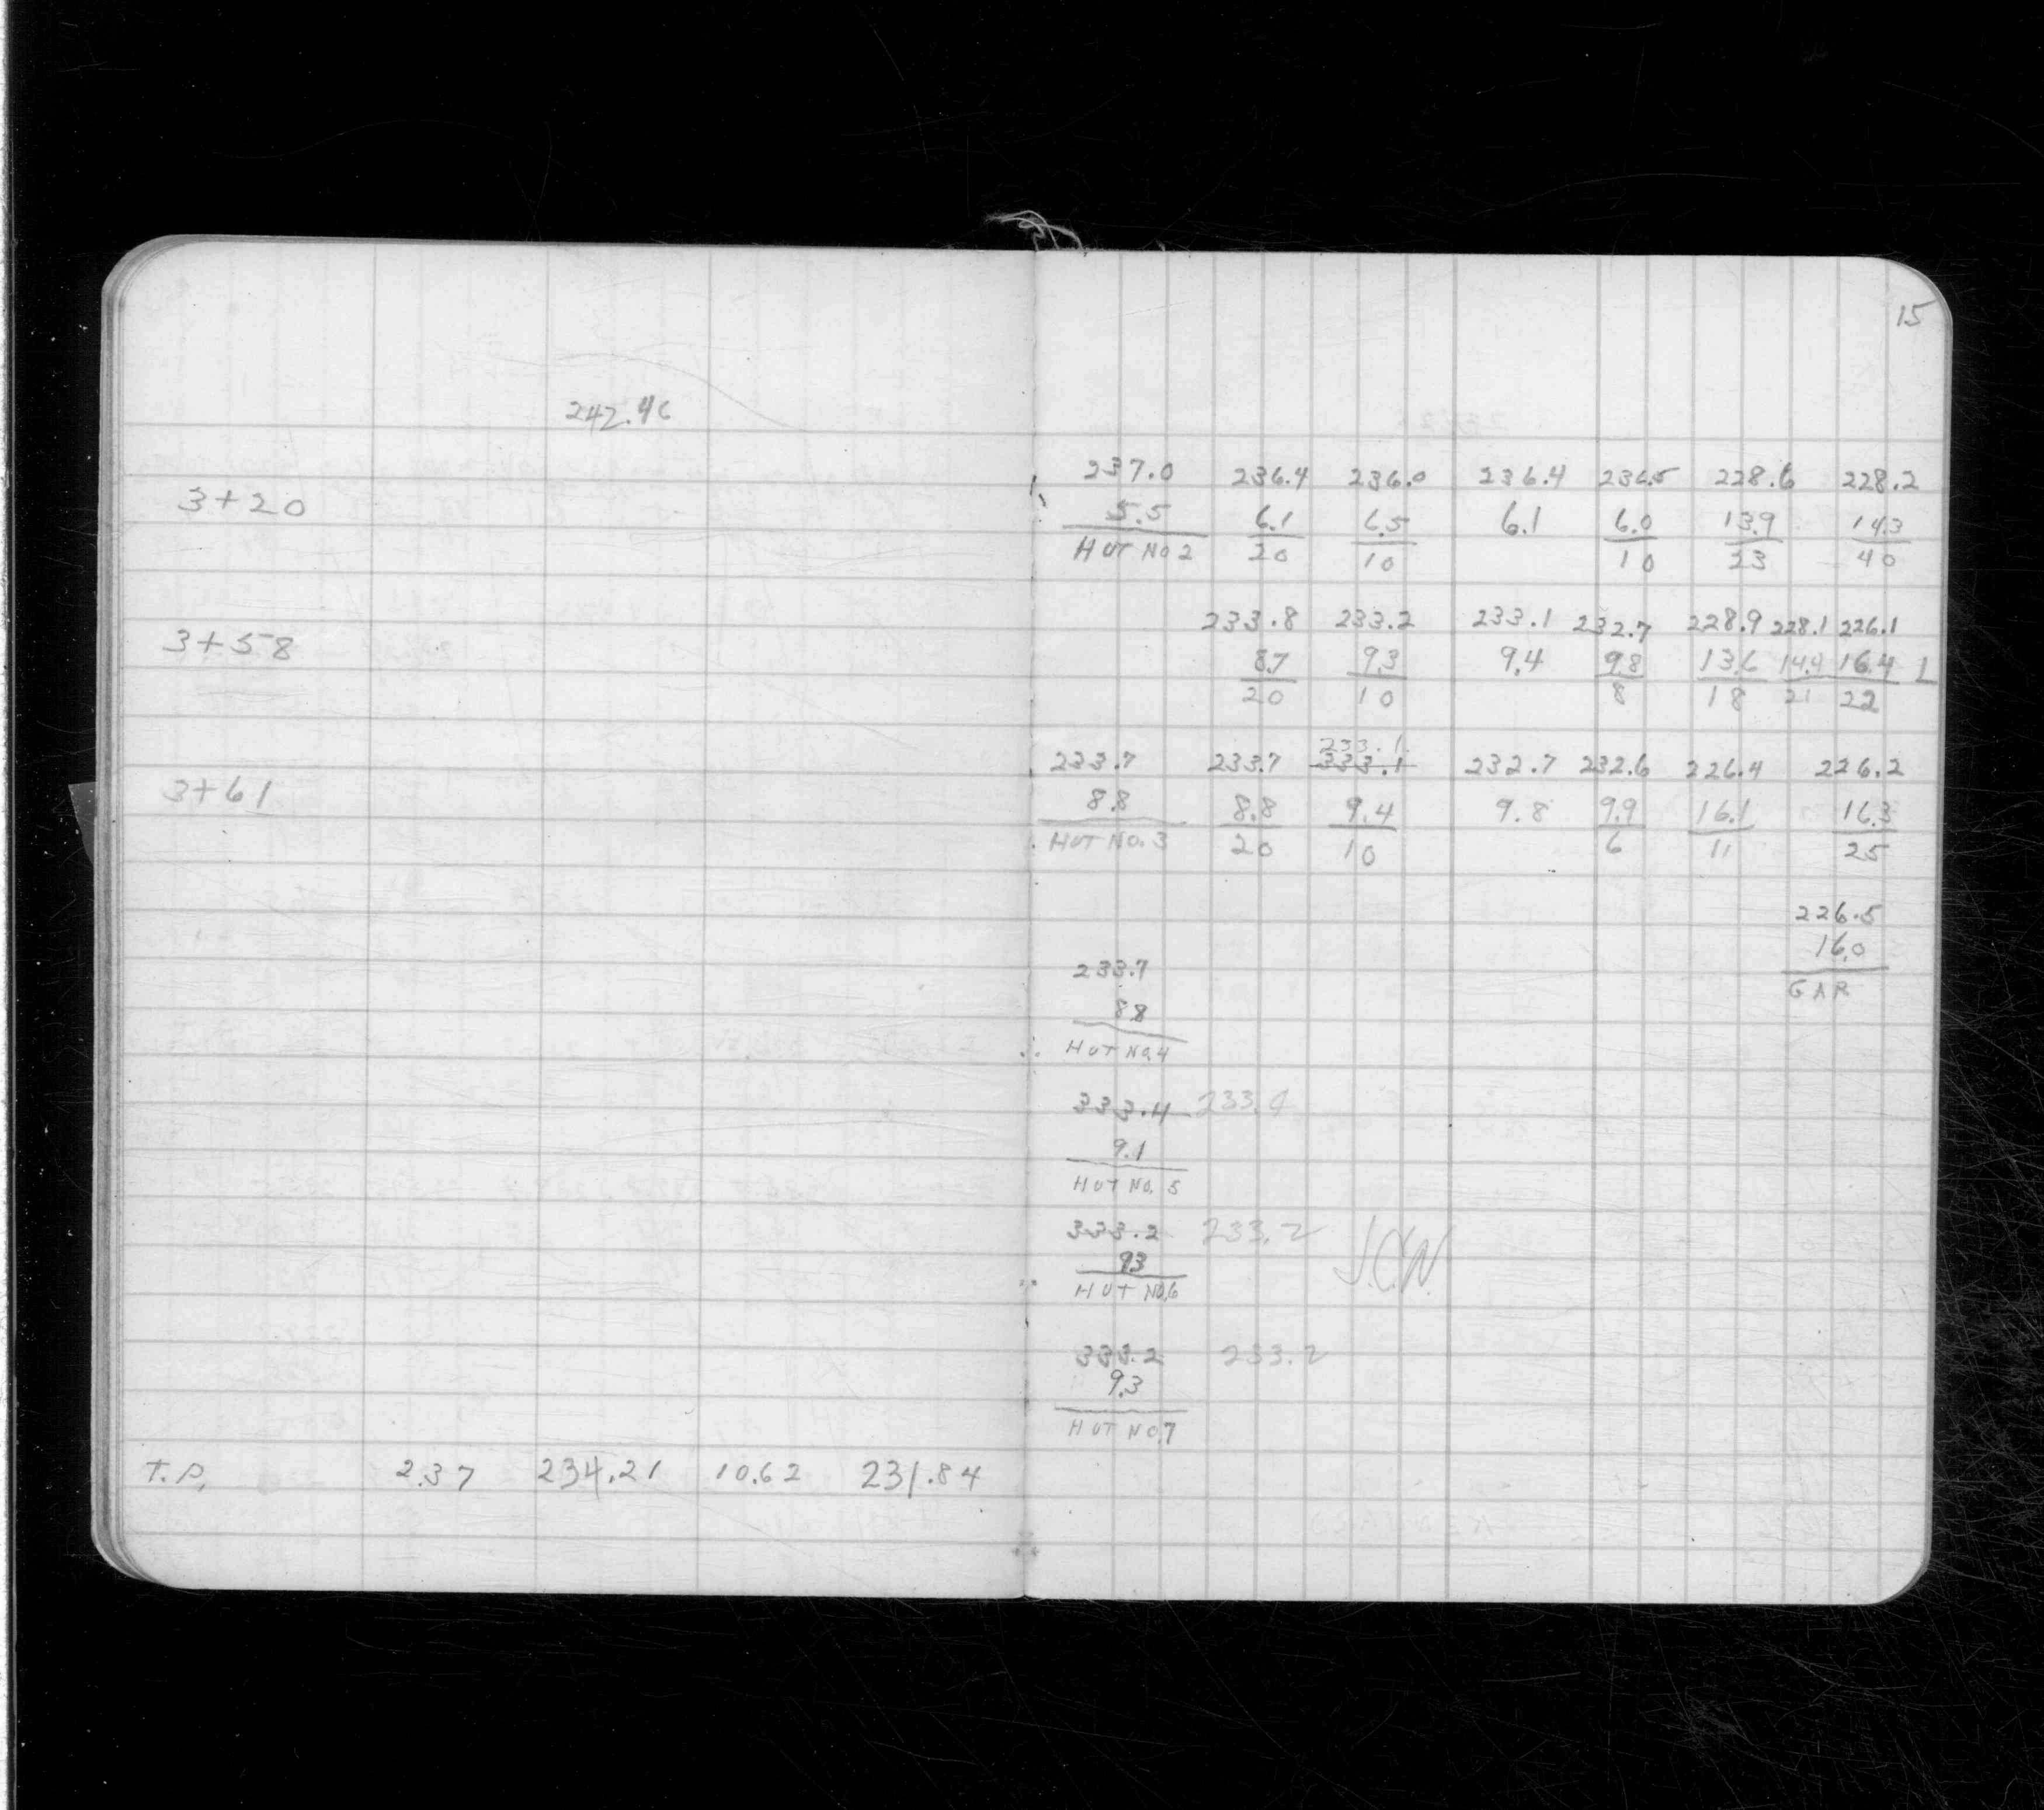 15
242.46
237.0 236.4 236.0 236.4 236.5 228.6 228.2
3+20 5.5 6.1 6.5 6.1 6.0 13.9 14.3
HUT NO 2 20 10 10 23 40
233.8 233.2 233.1 232.7 228.9 228.1 226.1
3+58 8.7 9.3 9.4 9.8 13.6 14.4 16.4 L
20 10 8 18 21 22
233.1
233.7 233.7 333.1 232.7 232.6 226.4 226.2
3+61 8.8 8.8 9.4 9.8 9.9 16.1 16.3
HUT NO. 3 20 10 6 11 25
226.5
16.0
GAR
233.7
8.8
HUT NO.4
333.4 233.4
9.1
HUT NO. 5
333.2 233.2 J.C.W.
93
HUT NO.6
333.2 233.2
9.3
HUT NO.7
T.P. 2.37 234.21 10.62 231.84